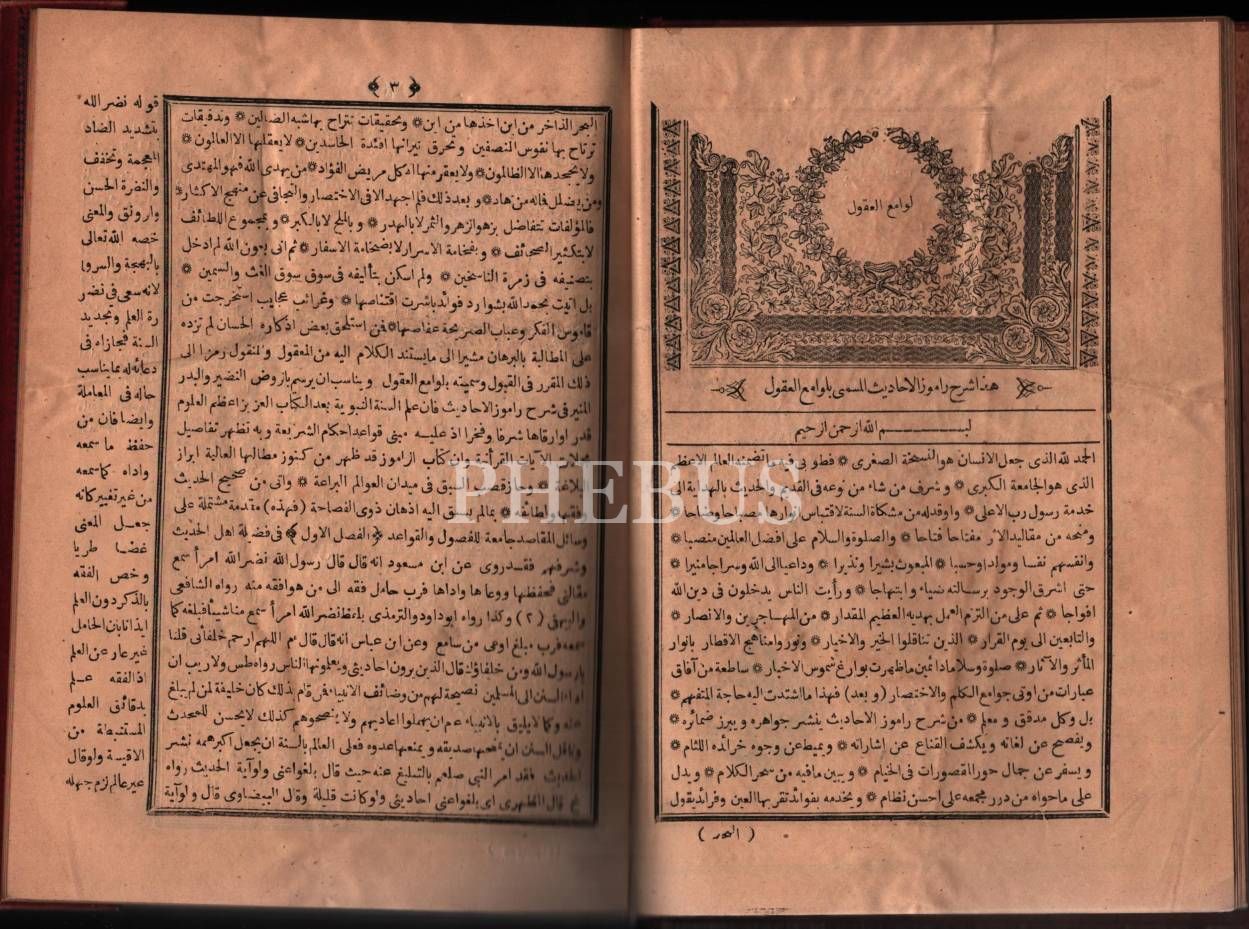 لوامع العقول
هذا شرح راموز الاحاديث المسمى بلوامع العقول
بسم الله الرحمن الرحيم
الحمد لله الذى جعل الانسان هو النسخة الصغرى ۞ فطوبى فيه ما تضمنه العالم الاعظم
الذى هو الجامعة الكبرى ۞ وشرف من شاء من نوعه فى القديم والحديث بالهداية الى
خدمة رسول رب الاعلى ۞ واوقد له من مشكاة السنة لاقتباس انوارها مصباحا وضاحا ۞
ومنحه من مقاليد الاثر مفتاحا فتاحا ۞ والصلوة والسلام على افضل العالمين منصبا ۞
وانفسهم نفسا ومولدا وحسبا ۞ المبعوث بشيرا ونذيرا ۞ وداعيا الى الله وسراجا منيرا ۞
حتى اشرق الوجود برسالته ضياء وابتهاجا ۞ ورأيت الناس يدخلون فى دين الله
افواجا ۞ ثم على من التزم العمل بهديه العظيم المقدار ۞ من المهاجرين والانصار ۞
والتابعين الى يوم القرار ۞ الذين تناقلوا الخبر والاخيار ۞ ونوروا مناهج الاقطار بانوار
المآثر والآثار ۞ صلوة وسلاما دائمين ما ظهرت بوازغ شموس الاخبار ۞ ساطعة من آفاق
عبارات من اوتى جوامع الكلم والاختصار (وبعد) فهذا ما اشتدت اليه حاجة المتفهم ۞
بل وكل مدقق و معلم ۞ من شرح راموز الاحاديث ينشر جواهره ويبرز ضمائره ۞
ويفصح عن لغاته ويكشف القناع عن اشاراته ۞ ويميط عن وجوه خرائده اللثام ۞
ويسفر عن جمال حور المقصورات فى الخيام ۞ ويبين ما فيه من سحر الكلام ۞ ويدل
على ما حواه من درر مجمعه على احسن نظام ۞ ويخدمه بفوائد تقر بها العين وفرائد يقول
(البحر)
۳
البحر الذاخر من اين اخذها من اين ۞ وتحقيقات تنزاح بها شبه الضالين ۞ وتدقيقات
ترتاح بها نفوس المنصفين وتحرق نيرانها افئدة الحاسدين ۞ لا يعقلها الا العالمون ۞
ولا يجحدها الا الظالمون ۞ ولا يعقر منها الا كل مريض الفؤاد ۞ من يهدى الله فهو المهتدى
ومن يضلل فماله من هاد ۞ وبعد ذلك فلم اجهد الا فى الاختصار والتجافى عن منهج الاكثار ۞
فالمؤلفات تتفاضل بزهو ازهر والثمر لا بالهدر ۞ وبالملح لا بالكبر ۞ وبمجموع اللطائف
لا بتكثير الصحائف ۞ وبفخامة الاسرار لا بضخامة الاسفار ۞ ثم انى بعون الله لم ادخل
بتصنيفه فى زمرة الناسخين ۞ ولم اسكن بتأليفه فى سوق سوق الغث والسمين ۞
بل اتيت بحمد الله بشوارد فوائد باشرت اقتناصها ۞ وغرائب عجايب استخرجت من
قاموس الفكر وعباب الصريحة عفاصها ۞ فمن استلحق بعض اذكاره الحسان لم تزده
على المطالبة بالبرهان مشيرا الى ما يستند الكلام اليه من المعقول والمنقول رمزا الى
ذلك المقرر فى القبول وسميته بلوامع العقول ويناسب ان يرسم بازوض النضير والبدر
المنير فى شرح راموز الاحاديث فان علم السنة النبوية بعد الكتاب العزيز اعظم العلوم
قدر اوارقاها شرفا وفخرا اذ عليه مبنى قواعد احكام الشريعة وبه تظهر تفاصيل
مجملات الآيات القرآنية وان كتاب ازاموز قد ظهر من كنوز مطالبها العالية ابراز
البلاغة ۞ وحاز قصب السبق فى ميدان العوالم البراعة ۞ واتى من صحيح الحديث
وفقهه ولطائفه ۞ بما لم يسبق اليه اذهان ذوى الفصاحة (فهذه) مقدمة مشتملة على
وسائل المقاصد جامعة للفصول والقواعد ﴿الفصل الاول﴾ فى فضيلة اهل الحديث
وشرفهم فقد روى عن ابن مسعود انه قال قال رسول الله نضر الله امرأ سمع
مقالتى فحفظها ووعاها واداها فرب حامل فقه الى من هو افقه منه رواه الشافعى
والبيهقى (۲) وكذا رواه ابوداود والترمذى بلفظ نضر الله امرأ سمع منا شيئا فبلغه كما
سمعه فرب مبلغ اوعى من سامع وعن ابن عباس انه قال قال م اللهم ارحم خلفائى قلنا
يارسول الله ومن خلفاؤك قال الذين يروون احاديثى ويعلمونها الناس رواه طس ولا ريب ان
اداء السنن الى المسلمين نصيحة لهم من وضائف الانبياء فمن قام بذلك كان خليفة لمن لم يبلغ
عنه وكما لا يليق بالانبياء عم ان يهملوا اعاديهم ولا ينصحوهم كذلك لا يحسن للمحدث
وناقل السنن ان يمنحها صديقه ويمنعها عدوه فعلى العالم بالسنة ان يجعل اكبر همه نشر
الحديث فقد امر النبى صلعم بالتبليغ عنه حيث قال بلغوا عنى ولو آية الحديث رواه
خ قال المظهرى اى بلغوا عنى احاديثى ولو كانت قليلة وقال البيضاوى قال ولو آية
قوله نضر الله
بتشديد الضاد
المعجمة وتخفف
والنضرة الحسن
وارونق والمعنى
خصه الله تعالى
بالبهجة والسرو
لانه سعى فى نضر
رة العلم وتجديد
السنة فجازاه فى
دعائه له بما يناسب
حاله فى المعاملة
وايضا فان من
حفظ ما سمعه
واداه كما سمعه
من غير تغيير كانه
جعل المعنى
غضا طريا
وخص الفقه
بالذكر دون العلم
ايذانا بان الحامل
غير عار عن العلم
اذ الفقه علم
بدقائق العلوم
المستنبطة من
الاقيسة ولو قال
غير عالم لزم جهله
PHEBUS